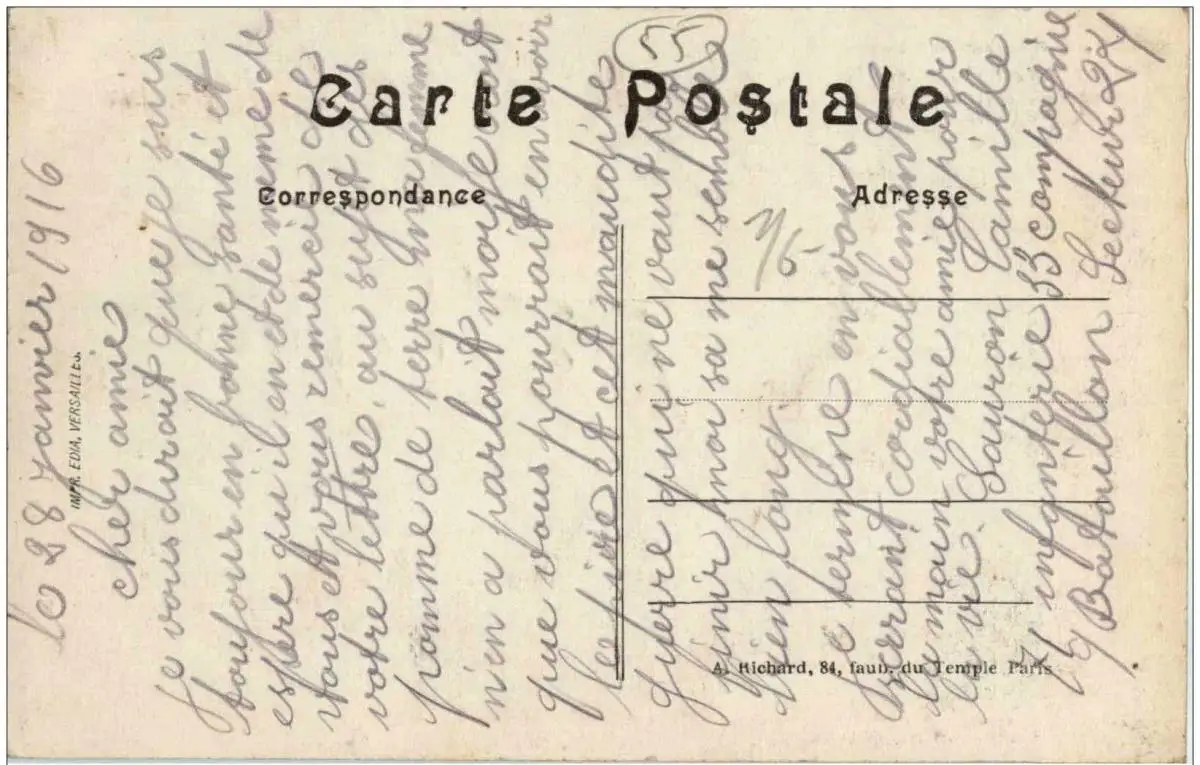 Carte Postale
Correspondance
Adresse
IMPR. EDIA, VERSAILLES.
A. Richard, 84, faub. du Temple Paris
55
le 28 Janvier 1916
cher amie
Je vous dirait que je suis
toujour en bonne santé et
espère qu il en et de meme de
vous et vous remercie de
votre lettre, au sujet des
pomme de terre ma femme
n'en a parlait moi je croit
que vous pourrait en avoir
le et cet maudite
guerre qui ne vaut pas
finir moi sa me semble
bien long
Je termine en vous
serrant cordiallement
la main votre amie pour
la vie. Camille
infanterie 33 compagnie
Bataillon Secteur